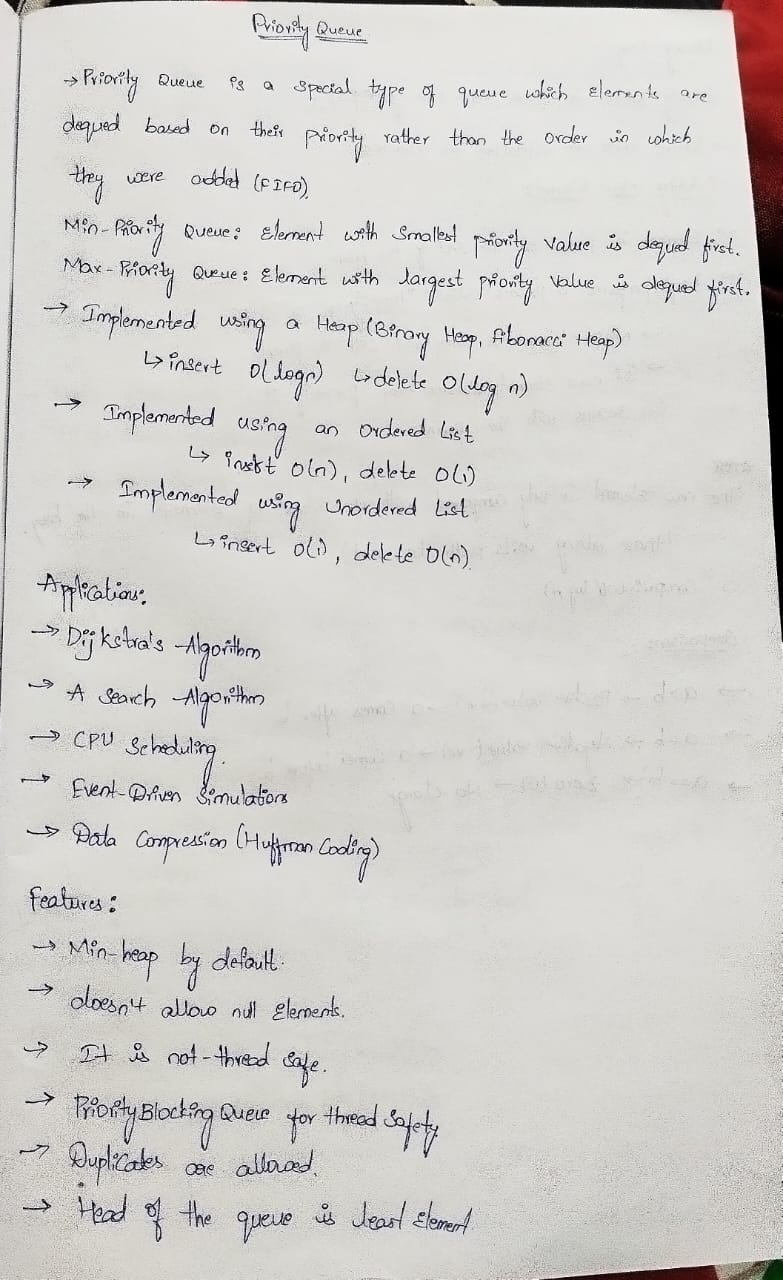 Priority Queue
→ Priority Queue is a special type of queue which elements are
dequed based on their priority rather than the order in which
they were added (FIFO).
Min-Priority Queue: Element with smallest priority value is dequed first.
Max-Priority Queue: Element with largest priority value is dequed first.
→ Implemented using a Heap (Binary Heap, fibonacci Heap)
↳ insert O(logn) ↳ delete O(log n)
→ Implemented using an Ordered List
↳ insert O(n), delete O(1)
→ Implemented using Unordered List
↳ insert O(1), delete O(n).
Applications:
→ Dijkstra's Algorithm
→ A Search Algorithm
→ CPU Scheduling.
→ Event-Driven Simulations
→ Data Compression (Huffman Coding)
features:
→ Min-heap by default.
→ doesn't allow null elements.
→ It is not-thread safe.
→ PriorityBlocking Queue for thread safety
→ Duplicates are allowed.
→ Head of the queue is least element